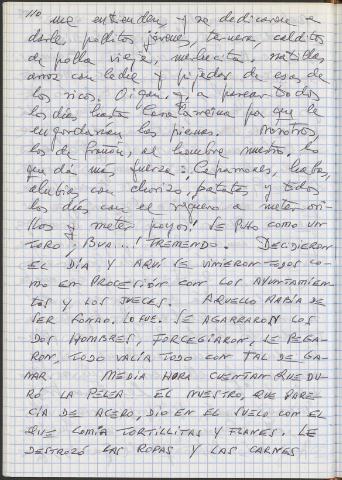 110
me entienden, y se dedicaron a
darle pollitos jóvenes, ternera, calditos
de polla vieja, merlucita, natillas
arroz con leche y pijadas de esas de
los ricos. Oigan, y a pasear todos
los días hasta porque le
engordaran las piernas. Nosotros,
los de al hombre nuestro, lo
que da más fuerza: Caparrones, habas,
alubias con chorizo, patatas, y todos
los días con el a meter
y meter payos! SE PUSO COMO UN
TORO; BUA...! TREMENDO. DECIDIERON
EL DÍA Y AQUÍ SE VINIERON TODOS CO-
MO EN PROCESIÓN CON LOS AYUNTAMIEN-
TOS Y LOS JUECES. AQUELLO HABÍA DE
SER SONAO. LO FUE. SE AGARRARON LOS
DOS HOMBRES, FORCEGIARON, SE PEGA-
RON, TODO VALÍA TODO CON TAL DE GA-
NAR. MEDIA HORA CUENTAN QUE DU-
RÓ LA PELEA. EL NUESTRO, QUE PARE-
CÍA DE ACERO, DIO EN EL SUELO CON EL
QUE COMÍA TORTILLITAS Y FLANES. LE
DESTROZÓ LAS ROPAS Y LAS CARNES